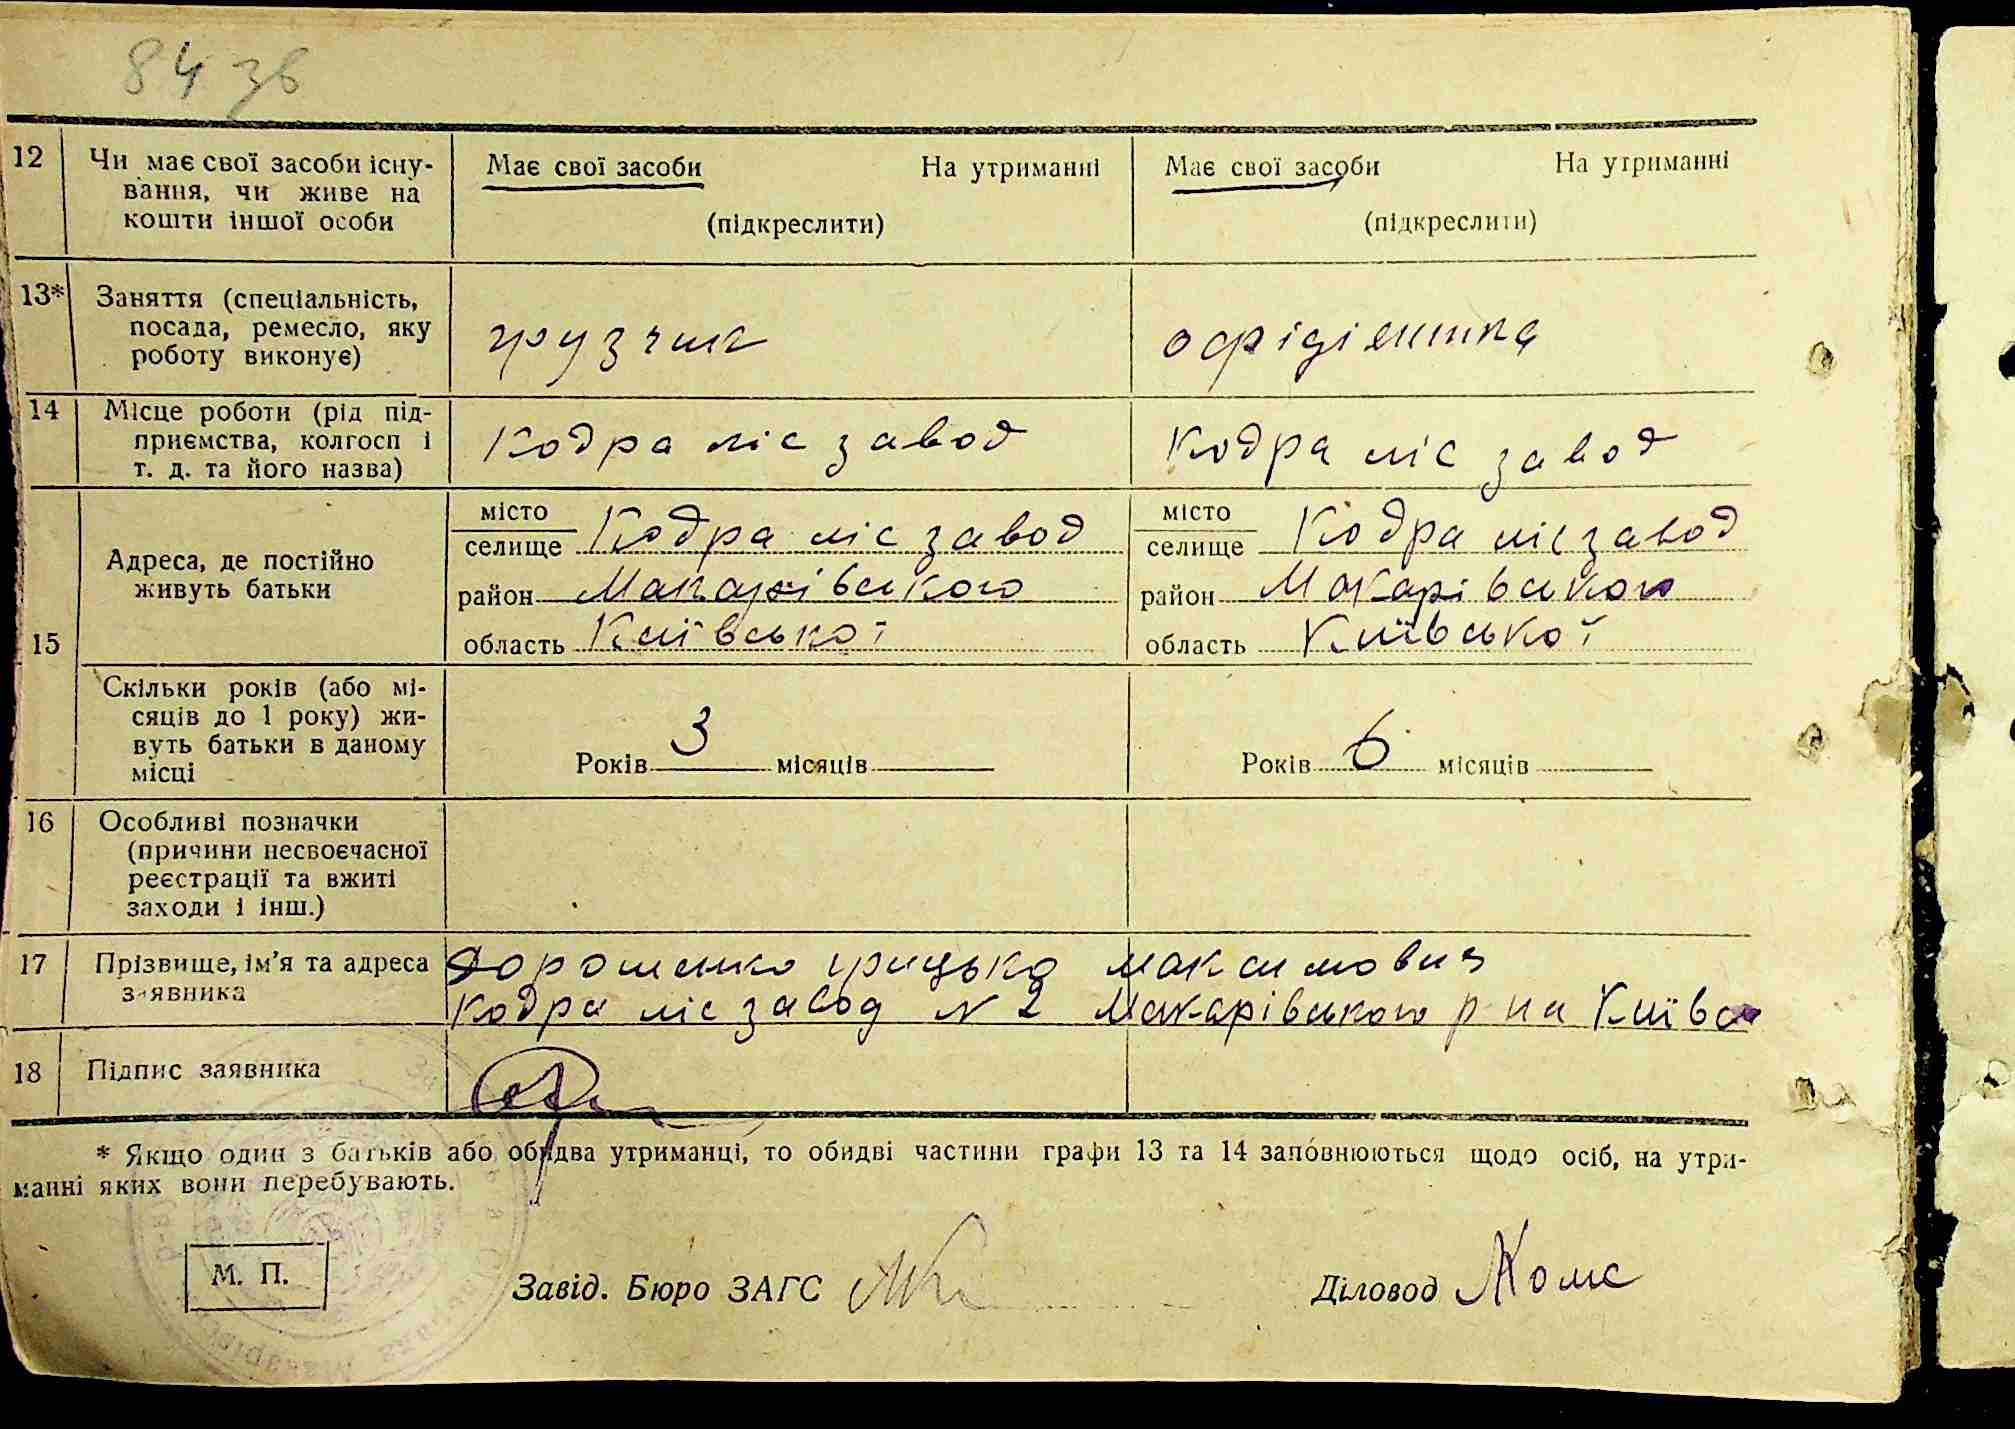 84 зв
12 Чи має свої засоби існу-
вання, чи живе на
кошти іншої особи
Має свої засоби На утриманні
(підкреслити)
Має свої засоби На утриманні
(підкреслити)
13* Заняття (спеціальність,
посада, ремесло, яку
роботу виконує)
грузчик
офіціянтка
14 Місце роботи (рід під-
приємства, колгосп і
т. д. та його назва)
Кодра ліс завод
Кодра ліс завод
15 Адреса, де постійно
живуть батьки
місто
селище Кодра ліс завод
район Макарівського
область Київської
місто
селище Кодра ліс завод
район Макарівського
область Київської
Скільки років (або мі-
сяців до 1 року) жи-
вуть батьки в даному
місці
Років 3 місяців
Років 6 місяців
16 Особливі позначки
(причини несвоєчасної
реєстрації та вжиті
заходи і інш.)
17 Прізвище, ім'я та адреса
заявника
Дорошенко грицько максимович
Кодра ліс завод N 2 Макарівського р на Київс
18 Підпис заявника
* Якщо один з батьків або обидва утриманці, то обидві частини графи 13 та 14 заповнюються щодо осіб, на утри-
манні яких вони перебувають.
М. П.
Завід. Бюро ЗАГС
Діловод